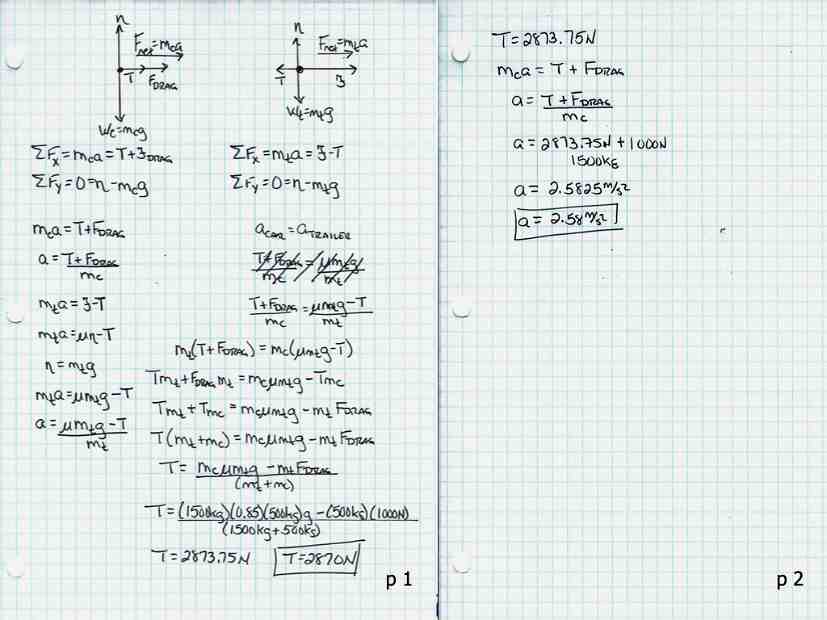 n
F_net=m_ca
T F_DRAG
W_c=m_cg
n
F_net=m_ta
T 𝔉
W_t=m_tg
ΣF_x=m_ca=T+𝔉_DRAG
ΣF_y=0=n-m_cg
ΣF_x=m_ta=𝔉-T
ΣF_y=0=n-m_tg
m_ca=T+F_DRAG
a=T+F_DRAG
m_c
m_ta=𝔉-T
m_ta=μn-T
n=m_tg
m_ta=μm_tg-T
a=μm_tg-T
m_t
a_CAR=a_TRAILER
T+F_DRAG = μm_tg
m_c m_t
T+F_DRAG = μm_tg-T
m_c m_t
m_t(T+F_DRAG)=m_c(μm_tg-T)
Tm_t+F_DRAG m_t=m_cμm_tg-Tm_c
Tm_t+Tm_c=m_cμm_tg-m_tF_DRAG
T(m_t+m_c)=m_cμm_tg-m_tF_DRAG
T= m_cμm_tg-m_tF_DRAG
(m_t+m_c)
T=(1500kg)(0.85)(500kg)g-(500kg)(1000N)
(1500kg+500kg)
T=2873.75N T=2870N
p 1
T=2873.75N
m_ca=T+F_DRAG
a=T+F_DRAG
m_c
a=2873.75N+1000N
1500kg
a=2.5825m/s²
a=2.58m/s²
p 2